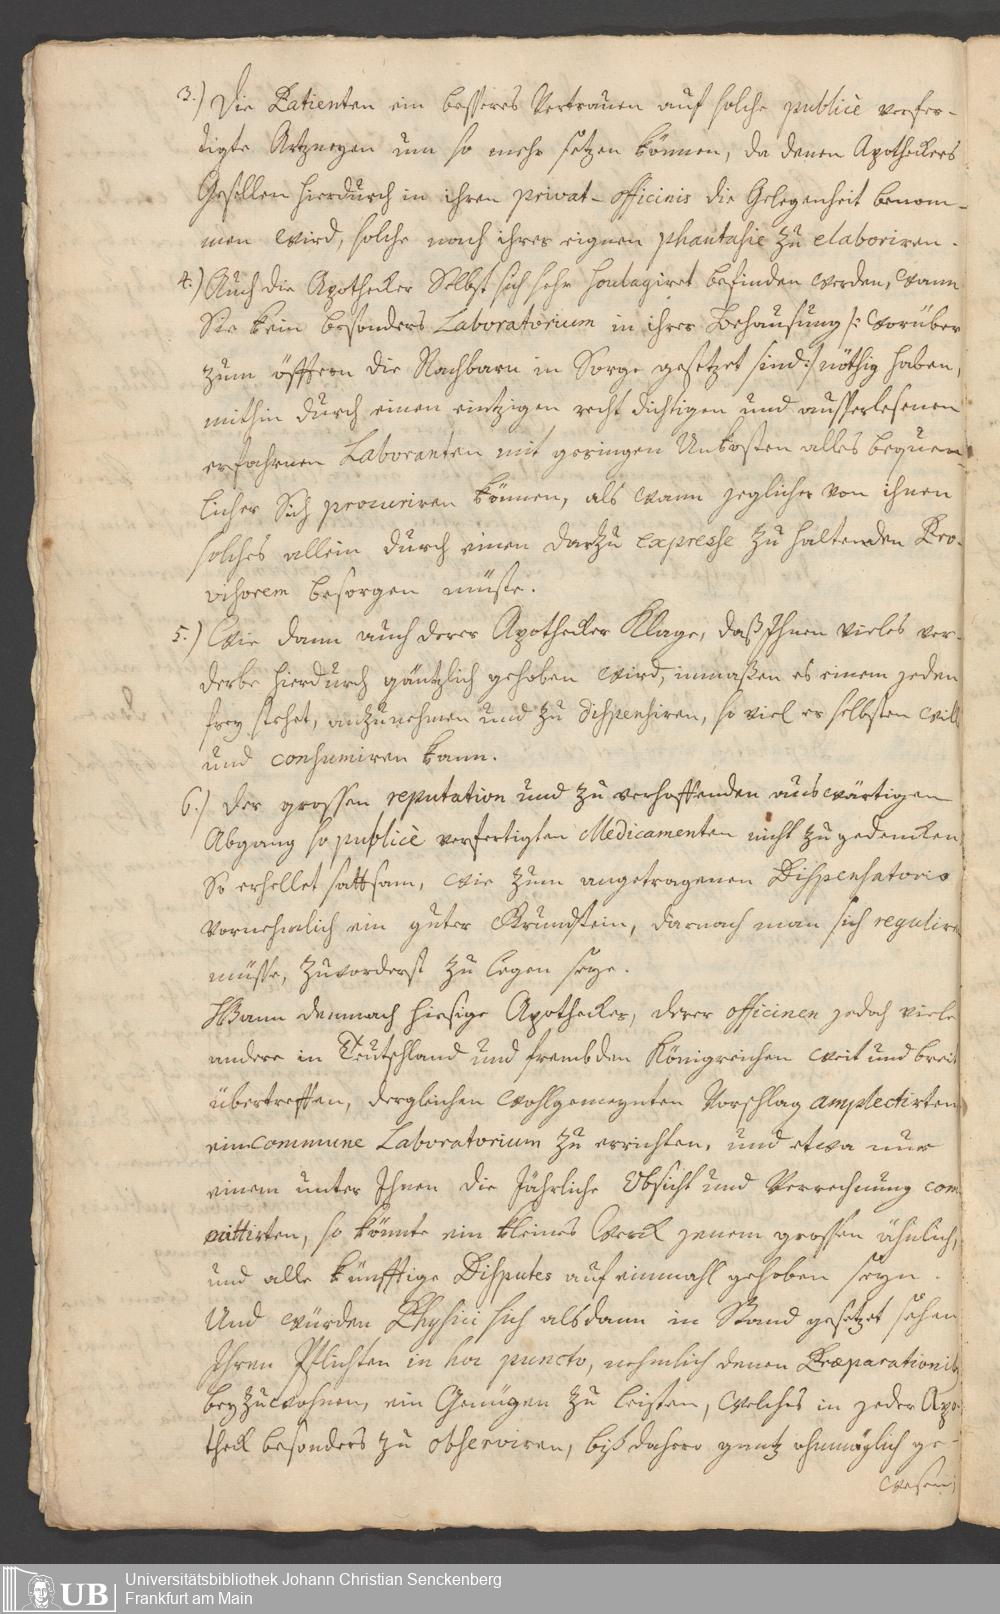 3.) Die Patienten ein besseres Vertrauen auf solche publicè verfer-
tigte Artzneyen um so mehr setzen können, da denen Apotheckers
Gesellen hierdurch in ihren privat-officinis die Gelegenheit benom-
men wird, solche nach ihrer eignen phantasie zu elaboriren.
4.) Auch die Apothecker Selbst sich sehr soulagiret befinden werden, wann
Sie kein besonders Laboratorium in ihrer Behausung /: worüber
zum öfftern die Nachbarn in Sorge gesetzet sind :/ nöthig haben,
mithin durch einen eintzigen recht dichtigen und ausserlesenen
erfahrnen Laboranten mit geringen Unkosten alles bequem-
licher Sich procuriren können, als wann jeglicher von ihnen
solches allein durch einen darzu expresse zu haltenden Pro-
visorem besorgen müste.
5.) Wie dann auch derer Apothecker Klage, daß Ihnen vieles ver-
derbe hierdurch gäntzlich gehoben wird, inmaßen es einem jeden
frey stehet, anzunehmen und zu dispensiren, so viel er selbsten will
und consumiren kann.
6.) Der grossen reputation und zu verhoffenden auswärtigen
Abgang so publicè verfertigten Medicamenten nicht zu gedencken
So erhellet sattsam, wie zum angetragenen Dispensatorio
vornehmlich ein guter Grundstein, darnach man sich regulire
müsse, zuvorderst zu legen seye.
Wann demnach hiesige Apothecker, derer officinen jedoch viele
andere in Teutschland und frembden Königreichen weit und breit
übertreffen, dergleichen wohlgemeynten Vorschlag amplectirten
ein commune Laboratorium zu errichten, und etwa nur
einem unter Ihnen die Jährliche Obsicht und Verrechnung com
mittirten, so könnte ein kleines Werck jenem grossen ähnlich,
und alle künfftige Disputes auf einmahl gehoben seyn.
Und würden Physici sich alsdann in Stand gesetzet sehen
Ihren Pflichten in hoc puncto, nehmlich denen Præparationib
beyzuwohnen, ein Genügen zu leisten, welches in jeder Apo-
theck besonders zu observiren, biß dahero gantz ohnmöglich ge-
wesen;
UB
Universitätsbibliothek Johann Christian Senckenberg
Frankfurt am Main